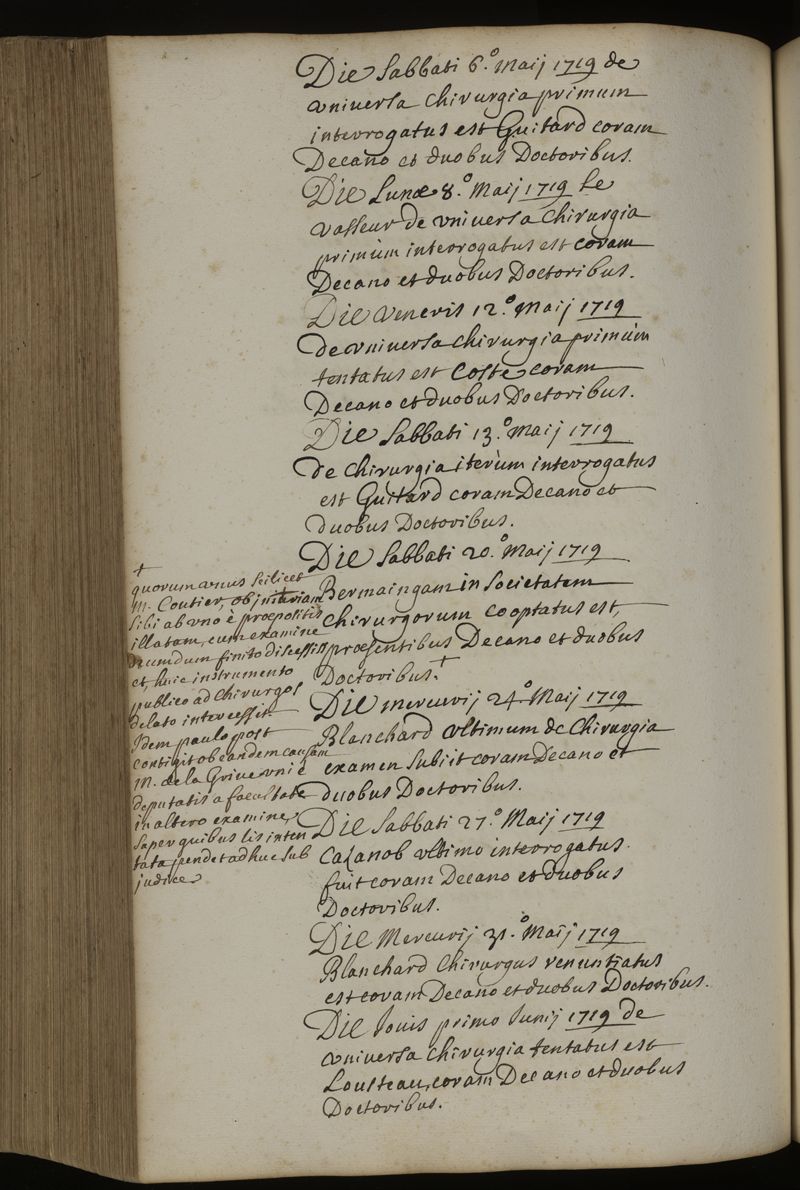 Die Sabbati 6.º Maij 1719 de
vniversa chirurgia primum
interrogatus est Guitard coram
Decano et duobus Doctoribus.
Die Lunæ 8.º Maij 1719 Le
vasseur de vniversa chirurgia
primùm interrogatus est coram
Decano et duobus Doctoribus.
Die Veneris 12.º Maij 1719
de vniversa chirurgia primùm
tentatus est Coste coram
Decano et duobus Doctoribus.
Die Sabbati 13.º Maij 1719
de chirurgia iterùm interrogatus
est Guitard coram Decano et
duobus Doctoribus.
Die Sabbati 20.º Maij 1719
Bermaingam in Societatem
chirurgorum cooptatus est,
præsentibus Decano et duobus
Doctoribus.+
Die mercurij 24º Maij 1719
Blanchard vltimum de Chirurgia
examen subiit coram Decano et
duobus Doctoribus.
Die Sabbati 27.º Maij 1719
Cazanob vltimo interrogatus
fuit coram Decano et duobus
Doctoribus.
Die Mercurij 31.º Maij 1719
Blanchard Chirurgus renuntiatus
est coram Decano et duobus Doctoribus.
Die Jouis primo Junij 1719 de
vniversa chirurgia tentatus est
Lousteau, coram Decano et duobus
Doctoribus.
+
quorum vnus scilicet
M. Coutier, ob injuriam
sibi ab vno è præpositis
illatam, cum examine
necdum finito discessit
et, huic instrumento
publico ad chirurgos
delato intercessit.
Idem paulo post
contigit ob eandem causam
M. de la Grive vni è
deputatis a facultate
in altero examine,
super quibus lis inten
tata pendet adhuc sub
judice